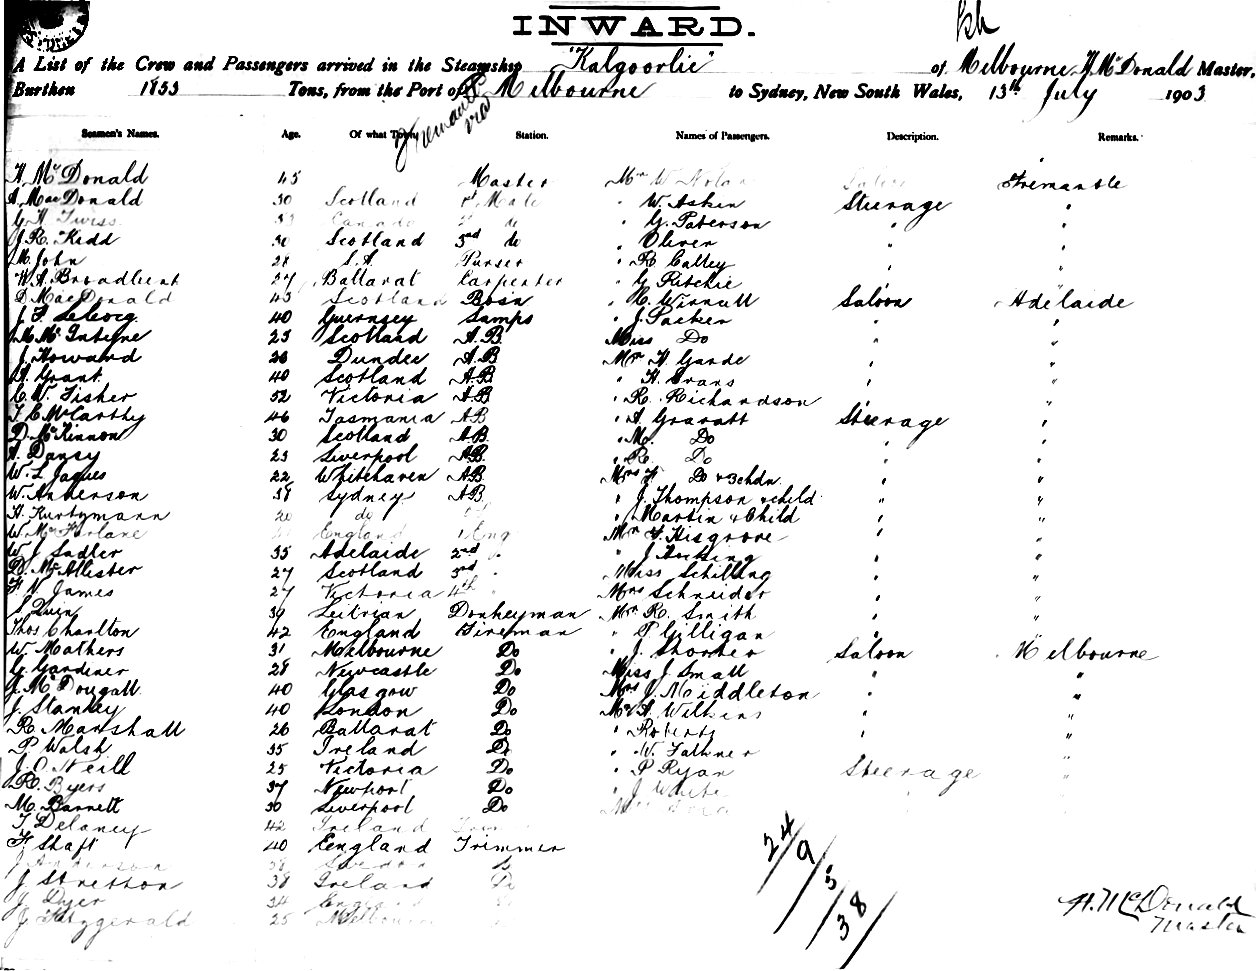 INWARD.
A List of the Crew and Passengers arrived in the Steamship "Kalgoorlie" of Melbourne, H. McDonald Master,
Burthen 1853 Tons, from the Port of Melbourne to Sydney, New South Wales, 13th July 1903
Fremantle via
Seamen's Names. Age. Of what Town. Station. Names of Passengers. Description. Remarks.
H. McDonald 45 Master Mr W. Nolan Fremantle
A. MacDonald 30 Scotland 1st Mate " W. Askin Steerage "
Canada 2nd do " G. Paterson " "
J. R. Kidd Scotland 3rd do " Oliver " "
M. John 28 S.A. Purser " R. Calley " "
W. A. Broadbent 27 Ballarat Carpenter " G. Ritchie " "
D. MacDonald 43 Scotland Bosn " Saloon Adelaide
40 Guernsey Lamps " J. Packer " "
25 Scotland A.B. Miss Do " "
J. Howard Dundee A.B. Mr H. Garde " "
A. Grant 40 Scotland A.B. " " "
C. W. Fisher 52 Victoria A.B. " R. Richardson " "
T. C. McCarthy 46 Tasmania A.B. " A Steerage "
D. McKinnon 30 Scotland A.B. " M. Do " "
A. Dancy 23 Liverpool A.B. " R Do " "
W. L. Jaques 22 Whitehaven A.B. Mrs F Do & 3 chdn " "
W. Anderson 38 Sydney A.B. " J. Thompson & child " "
H. do " Martin & Child " "
W. McFarlane England 1 Eng Mr " "
W. J. Sadler 35 Adelaide 2nd " " J. Hocking " "
D. McAllister 27 Scotland 3rd " Miss Schilling " "
James 27 Victoria 4th " Mrs Schneider " "
Quin 39 Leitrim Donkeyman Mr R. Smith " "
Thos Charlton 42 England Fireman " P Gilligan " "
W. Mathers 31 Melbourne Do " J. Saloon Melbourne
G. Gardiner 28 Newcastle Do Miss J Small " "
J. McDougall 40 Glasgow Do Mrs J. Middleton " "
J. Stanley 40 London Do Mr A. Wilkins " "
R. Marshall 26 Ballarat Do " Roberts " "
P. Walsh 35 Ireland Do " W. " "
J. O'Neill 25 Victoria Do " P Ryan Steerage "
R. Byers 37 Newport Do " J White "
M. Barnett 30 Liverpool Do
T. Delaney 42 Ireland
F. Shaft 40 England Trimmer
J. Anderson 38 Sweden
J Stretton 38 Ireland Do
J. Dyer 34 England
J. Fitzgerald 25 Melbourne
24/9/5/38
H. McDonald
Master